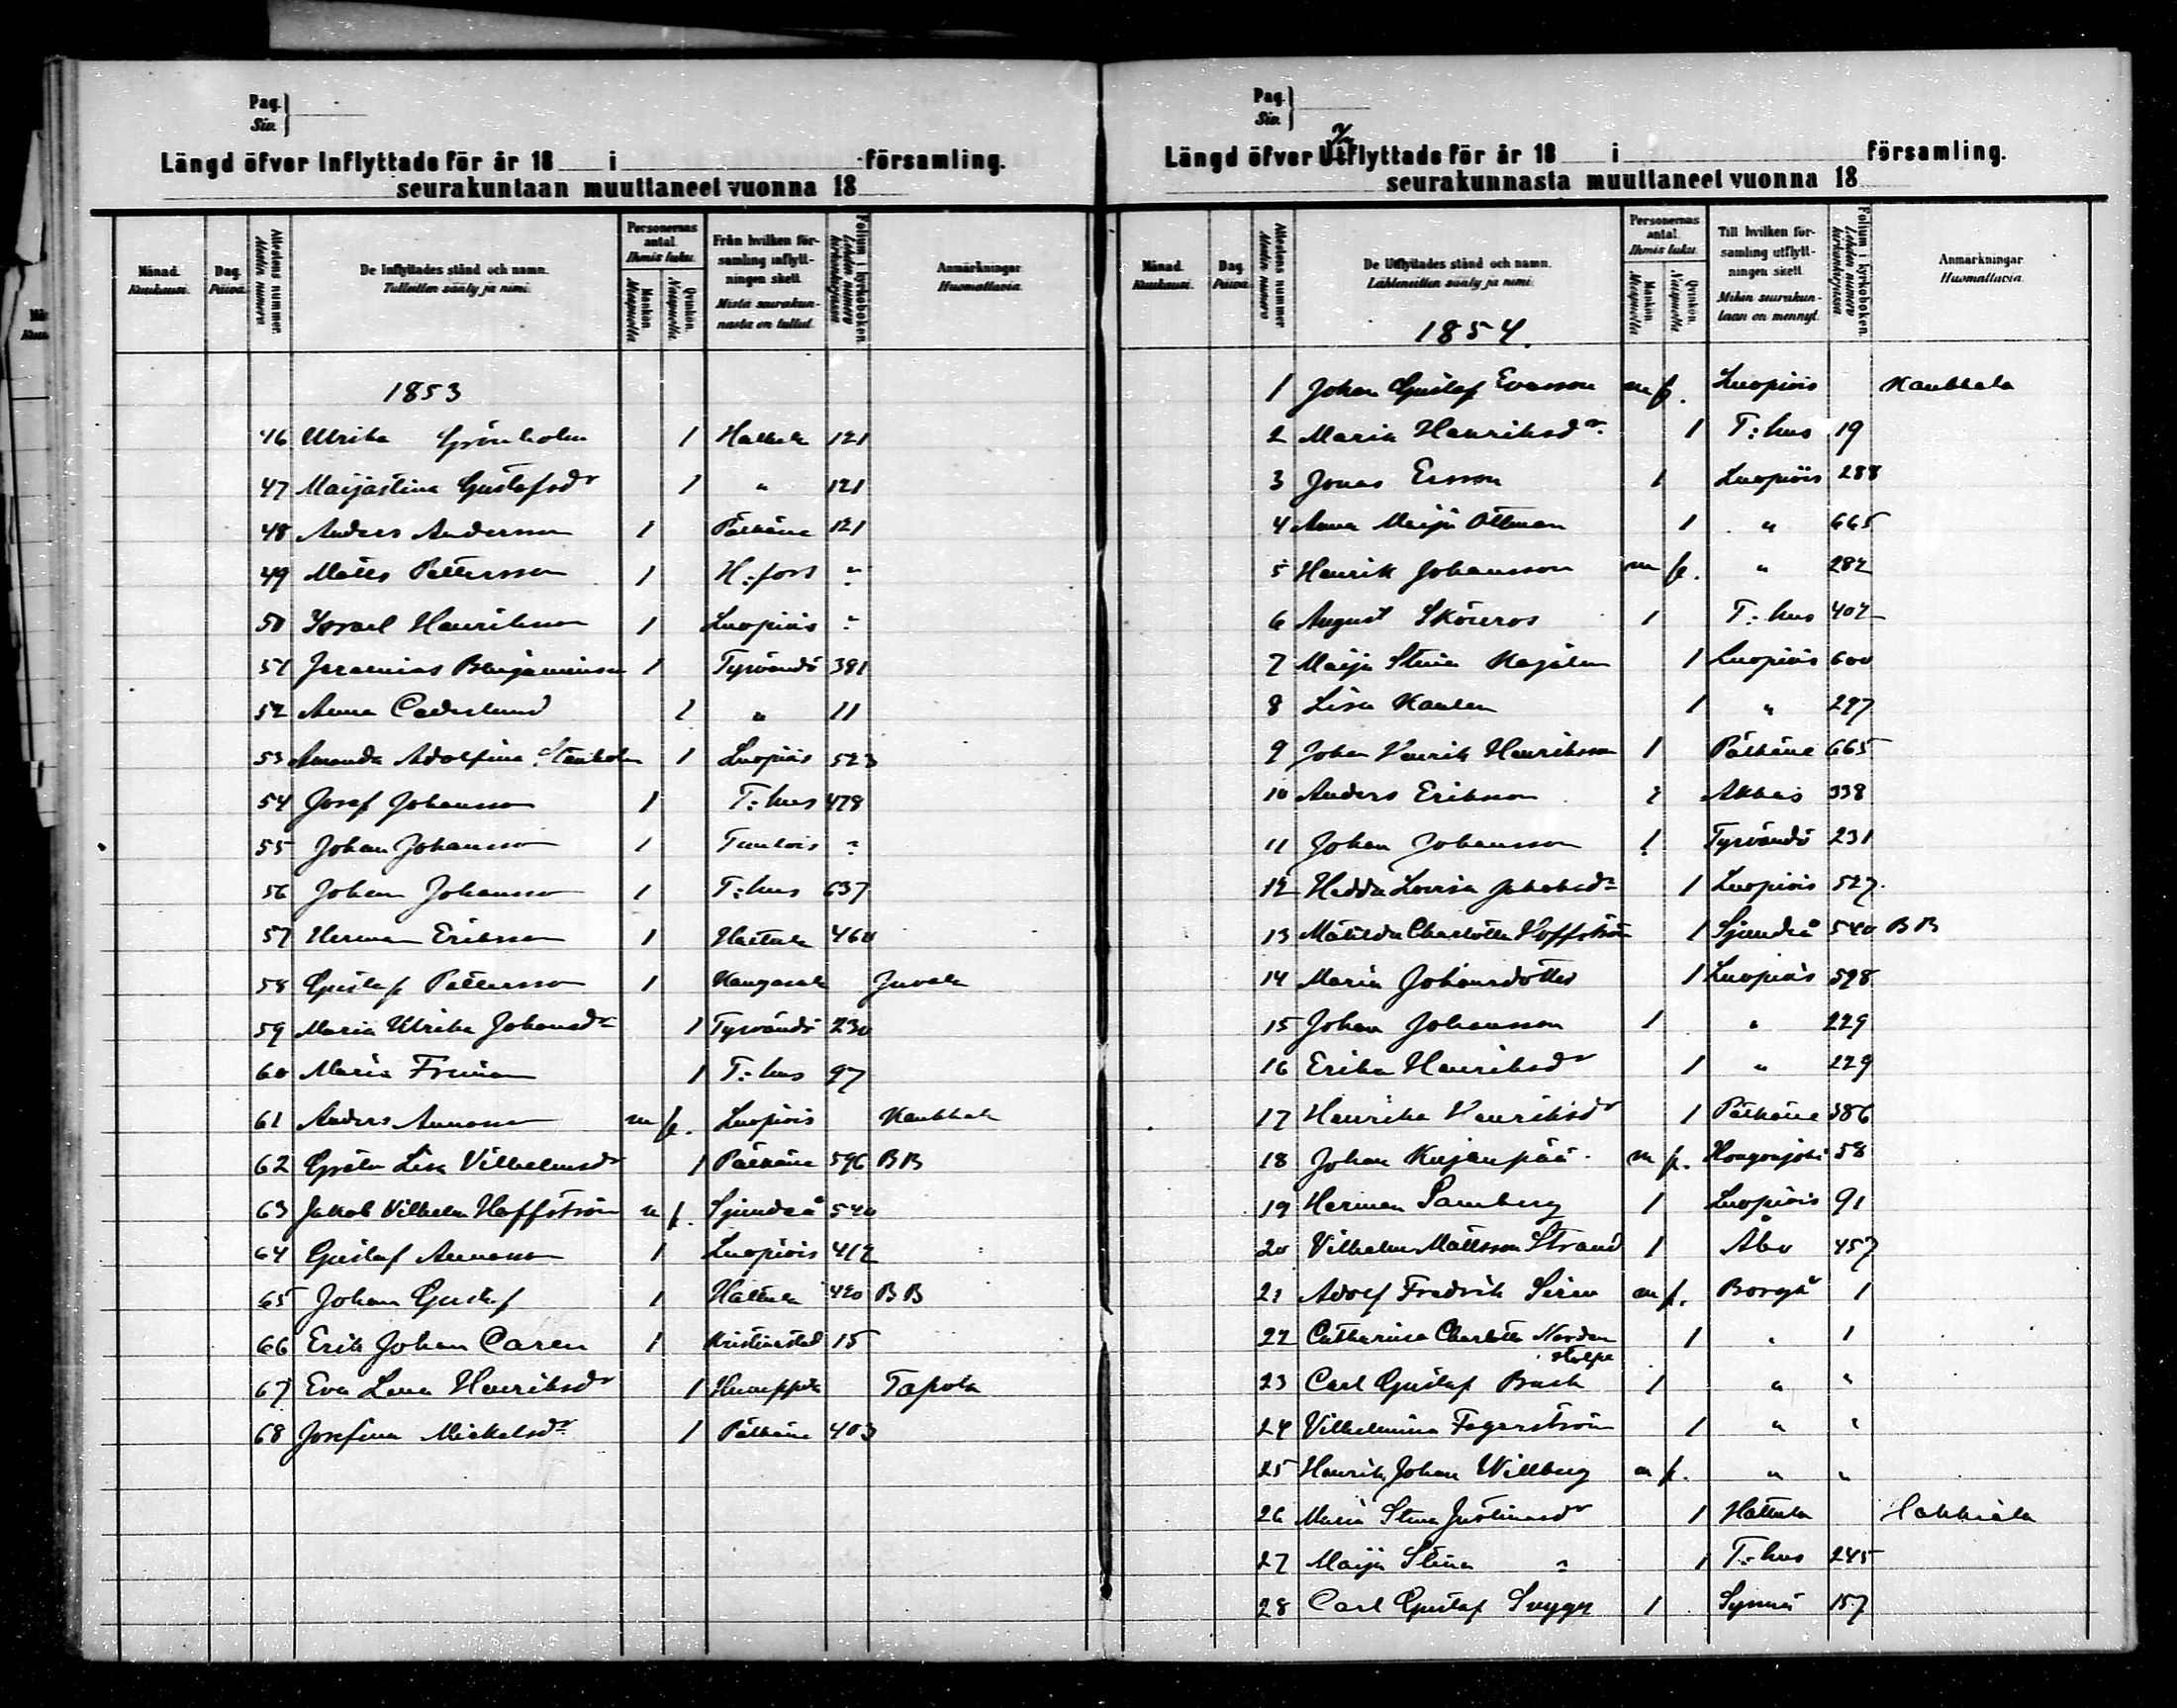 Pag.
Siv.
Längd öfver Inflyttade för år 18 i församling.
seurakuntaan muuttaneet vuonna 18
Månad. Kuukausi. Dag. Päivä. Attestens nummer. Mudin numero De Inflyttades stånd och namn. Tulleitten sääty ja nimi. Personernas antal. Ihmis luku. Mankön. Miespuolta Qvinkön. Naispuolta Från hvilken församling inflyttningen skett. Mistä seurakunnasta on tullut. Folium i kyrkoboken. Lehden numero kirkonkirjassa Anmärkningar. Huomattavia.
1853
46 Ulrika Grönholm 1 Hattula 121
47 Maijastina Gustafsdr 1 " 121
48 Anders Andersson 1 Pälkäne 121
49 Matts Pettersson 1 H:fors "
50 Israel Henriksson 1 Luopiois "
51 Jeremias Benjaminson 1 Tyrvändö 381
52 Anna Cederlund 1 " 11
53 Amanda Adolfina Stenholm 1 Luopiois 523
54 Josef Johansson 1 T:hus 478
55 Johan Johansson 1 Tuulois "
56 Johan Johansson 1 T:hus 637
57 Herman Eriksson 1 Hattula 460
58 Gustaf Pettersson 1 Kangasala Juvala
59 Maria Ulrika Johansdr 1 Tyrvändö 230
60 Maria Friman 1 T:hus 97
61 Anders Annasson m f. Luopiois Kaukkala
62 Greta Lisa Vilhelmsdr 1 Pälkäne 596 BB
63 Jakob Vilhelm Hoffström m f. Sjundeå 540
64 Gustaf Annasson 1 Luopiois 412
65 Johan Gustaf 1 Hattula 420 BB
66 Erik Johan Caren 1 Kristinestad 15
67 Eva Lena Henriksdr 1 Humppila Tapola
68 Josefina Mickelsdr 1 Pälkäne 403
Pag.
Siv.
Längd öfver Utflyttade för år 18 i församling.
seurakunnasta muuttaneet vuonna 18
Månad. Kuukausi. Dag. Päivä. Attestens nummer. Mudin numero De Utflyttades stånd och namn. Lähteneitten sääty ja nimi. Personernas antal. Ihmis luku. Mankön. Miespuolta Qvinkön. Naispuolta Till hvilken församling utflyttningen skett. Mihin seurakuntaan on mennyt. Folium i kyrkoboken. Lehden numero kirkonkirjassa Anmärkningar. Huomattavia.
1854.
1 Johan Gustaf Evasson m f. Luopiois Kaukkala
2 Maria Henriksdr 1 T:hus 19
3 Jonas Ersson 1 Luopiois 288
4 Anna Maija Öttman 1 " 665
5 Henrik Johansson m f. " 282
6 August Sköieros 1 T:hus 402
7 Maija Stina 1 Luopiois 600
8 Lisa Kaulen 1 " 297
9 Johan Henrik Henriksson 1 Pälkäne 665
10 Anders Eriksson 1 Akkas 338
11 Johan Johansson 1 Tyrvändö 231
12 Hedda Lovisa Jakobsdr 1 Luopiois 527
13 Matilda Charlotta Hoffström 1 Sjundeå 540 BB
14 Maria Johansdotter 1 Luopiois 598
15 Johan Johansson 1 " 229
16 Erika Henriksdr 1 " 229
17 Henrika Henriksdr 1 Pälkäne 386
18 Johan Kujanpää m f. Hongonjoki 58
19 Herman Samberg 1 Luopiois 91
20 Vilhelm Mattsson Strand 1 Åbo 457
21 Adolf Fredrik Siren m f. Borgå 1
22 Catharina Charlotta Norden 1 " 1
Stolpe
23 Carl Gustaf Busk 1 " "
24 Vilhelmina Fagerström 1 " "
25 Henrik Johan Willberg m f. " "
26 Maria Stina Justinasdr 1 Hattula
27 Maija Stina " 1 T:hus 245
28 Carl Gustaf Snygg 1 Sysmä 157